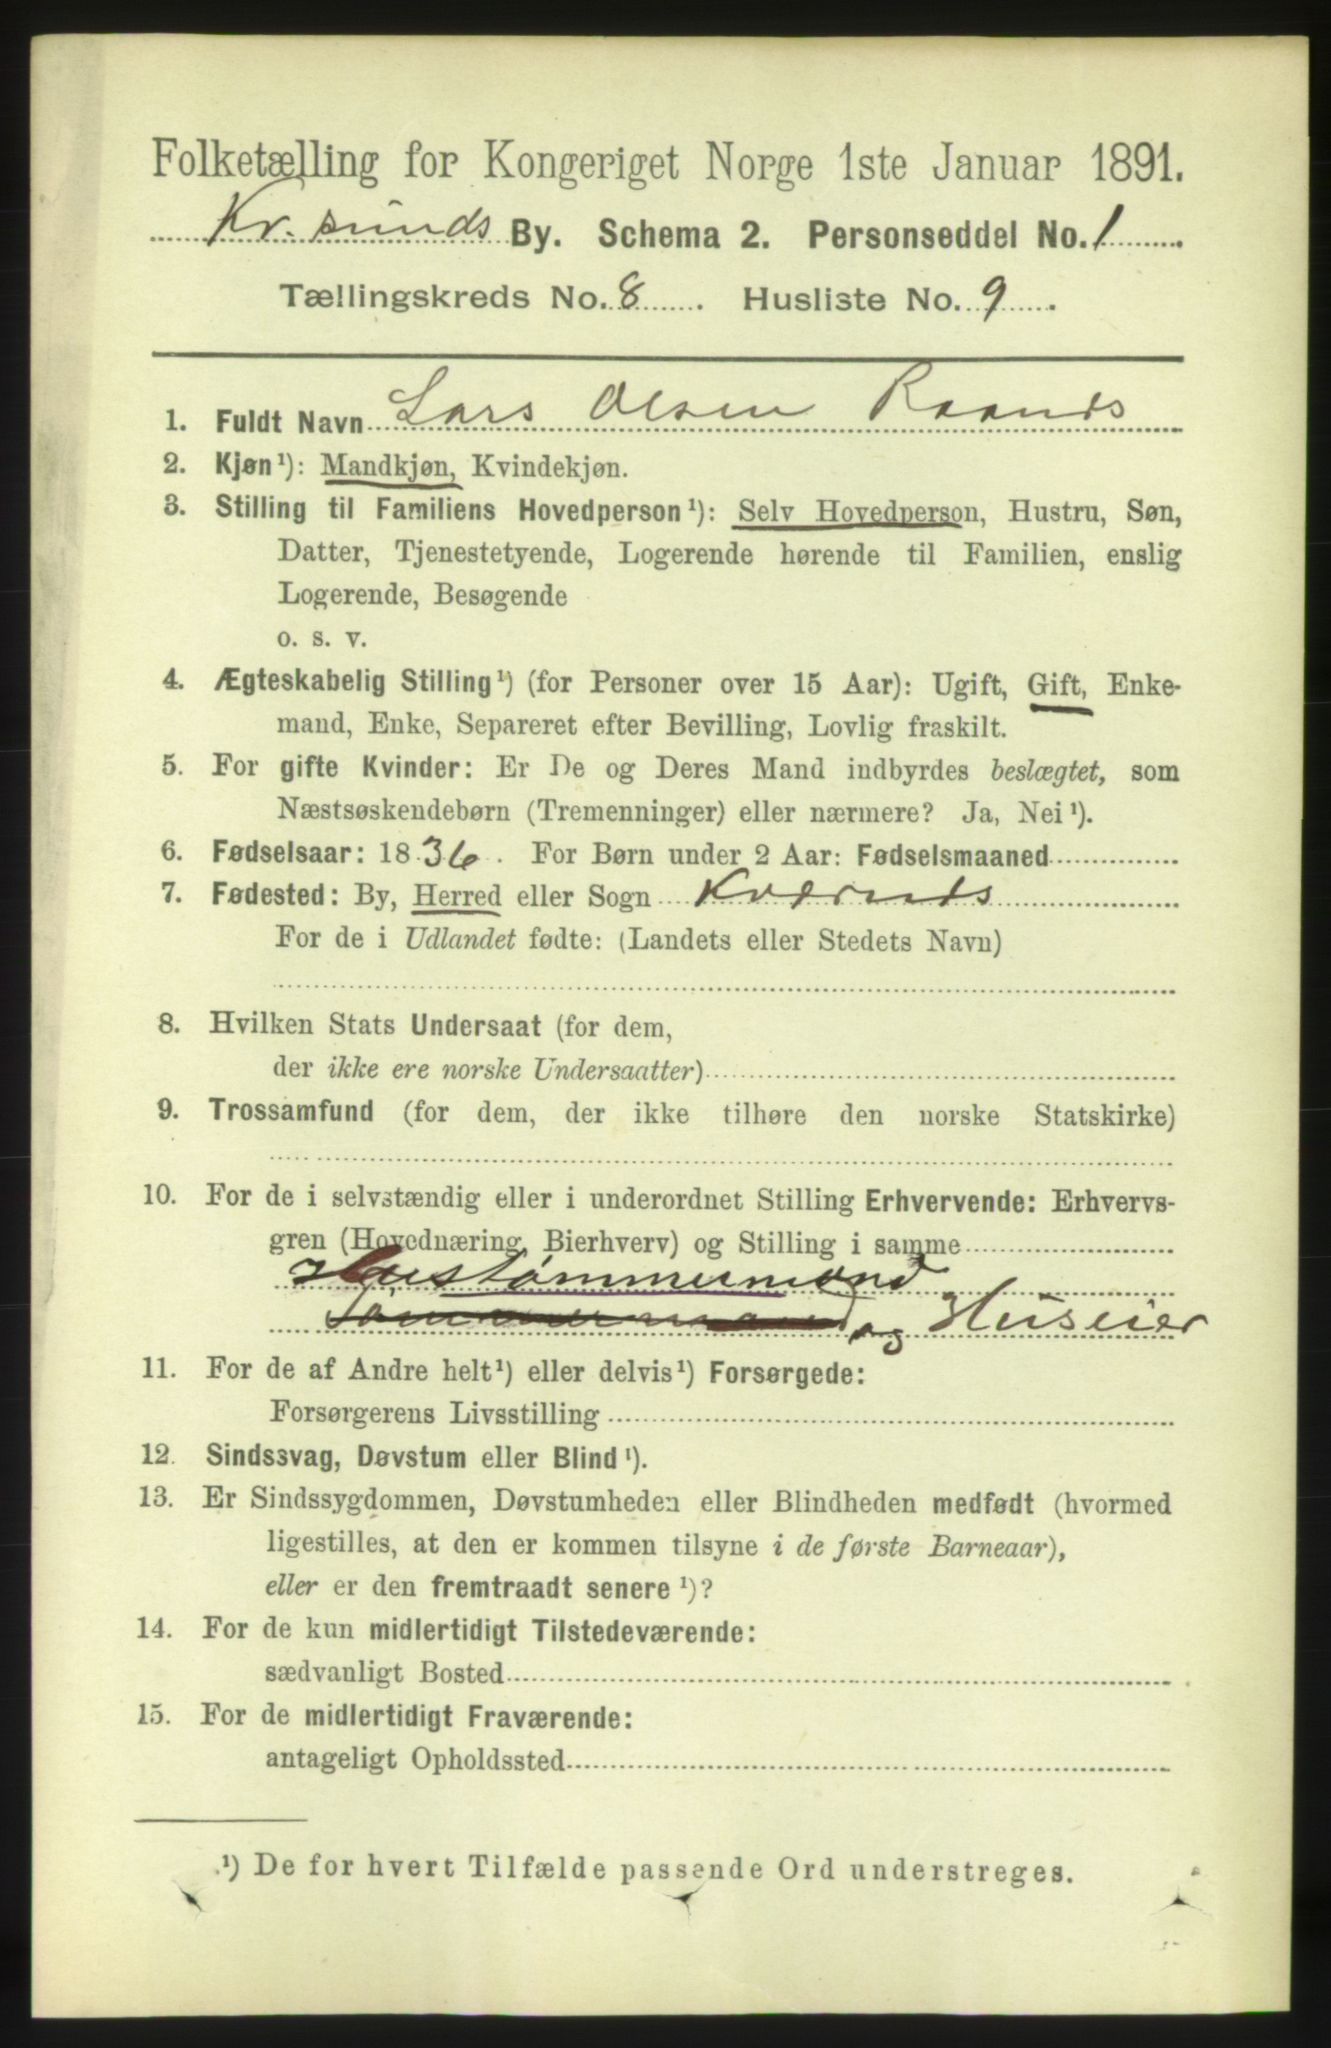 Folketælling for Kongeriget Norge 1ste Januar 1891.
Kr. sunds By. Schema 2. Personseddel No. 1
Tællingskreds No. 8. Husliste No. 9.
1. Fuldt Navn Lars Olsen Raands
2. Kjøn¹): Mandkjøn, Kvindekjøn.
3. Stilling til Familiens Hovedperson¹): Selv Hovedperson, Hustru, Søn,
Datter, Tjenestetyende, Logerende hørende til Familien, enslig
Logerende, Besøgende
o. s. v.
4. Ægteskabelig Stilling¹) (for Personer over 15 Aar): Ugift, Gift, Enke-
mand, Enke, Separeret efter Bevilling, Lovlig fraskilt.
5. For gifte Kvinder: Er De og Deres Mand indbyrdes beslægtet, som
Næstsøskendebørn (Tremenninger) eller nærmere? Ja, Nei¹).
6. Fødselsaar: 1836. For Børn under 2 Aar: Fødselsmaaned
7. Fødested: By, Herred eller Sogn Kværnæs
For de i Udlandet fødte: (Landets eller Stedets Navn)
8. Hvilken Stats Undersaat (for dem,
der ikke ere norske Undersaatter)
9. Trossamfund (for dem, der ikke tilhøre den norske Statskirke)
10. For de i selvstændig eller i underordnet Stilling Erhvervende: Erhvervs-
gren (Hovednæring, Bierhverv) og Stilling i samme
Hustømmermand
Tømmermand og Huseier
11. For de af Andre helt¹) eller delvis¹) Forsørgede:
Forsørgerens Livsstilling
12. Sindssvag, Døvstum eller Blind¹).
13. Er Sindssygdommen, Døvstumheden eller Blindheden medfødt (hvormed
ligestilles, at den er kommen tilsyne i de første Barneaar),
eller er den fremtraadt senere¹)?
14. For de kun midlertidigt Tilstedeværende:
sædvanligt Bosted
15. For de midlertidigt Fraværende:
antageligt Opholdssted
¹) De for hvert Tilfælde passende Ord understreges.